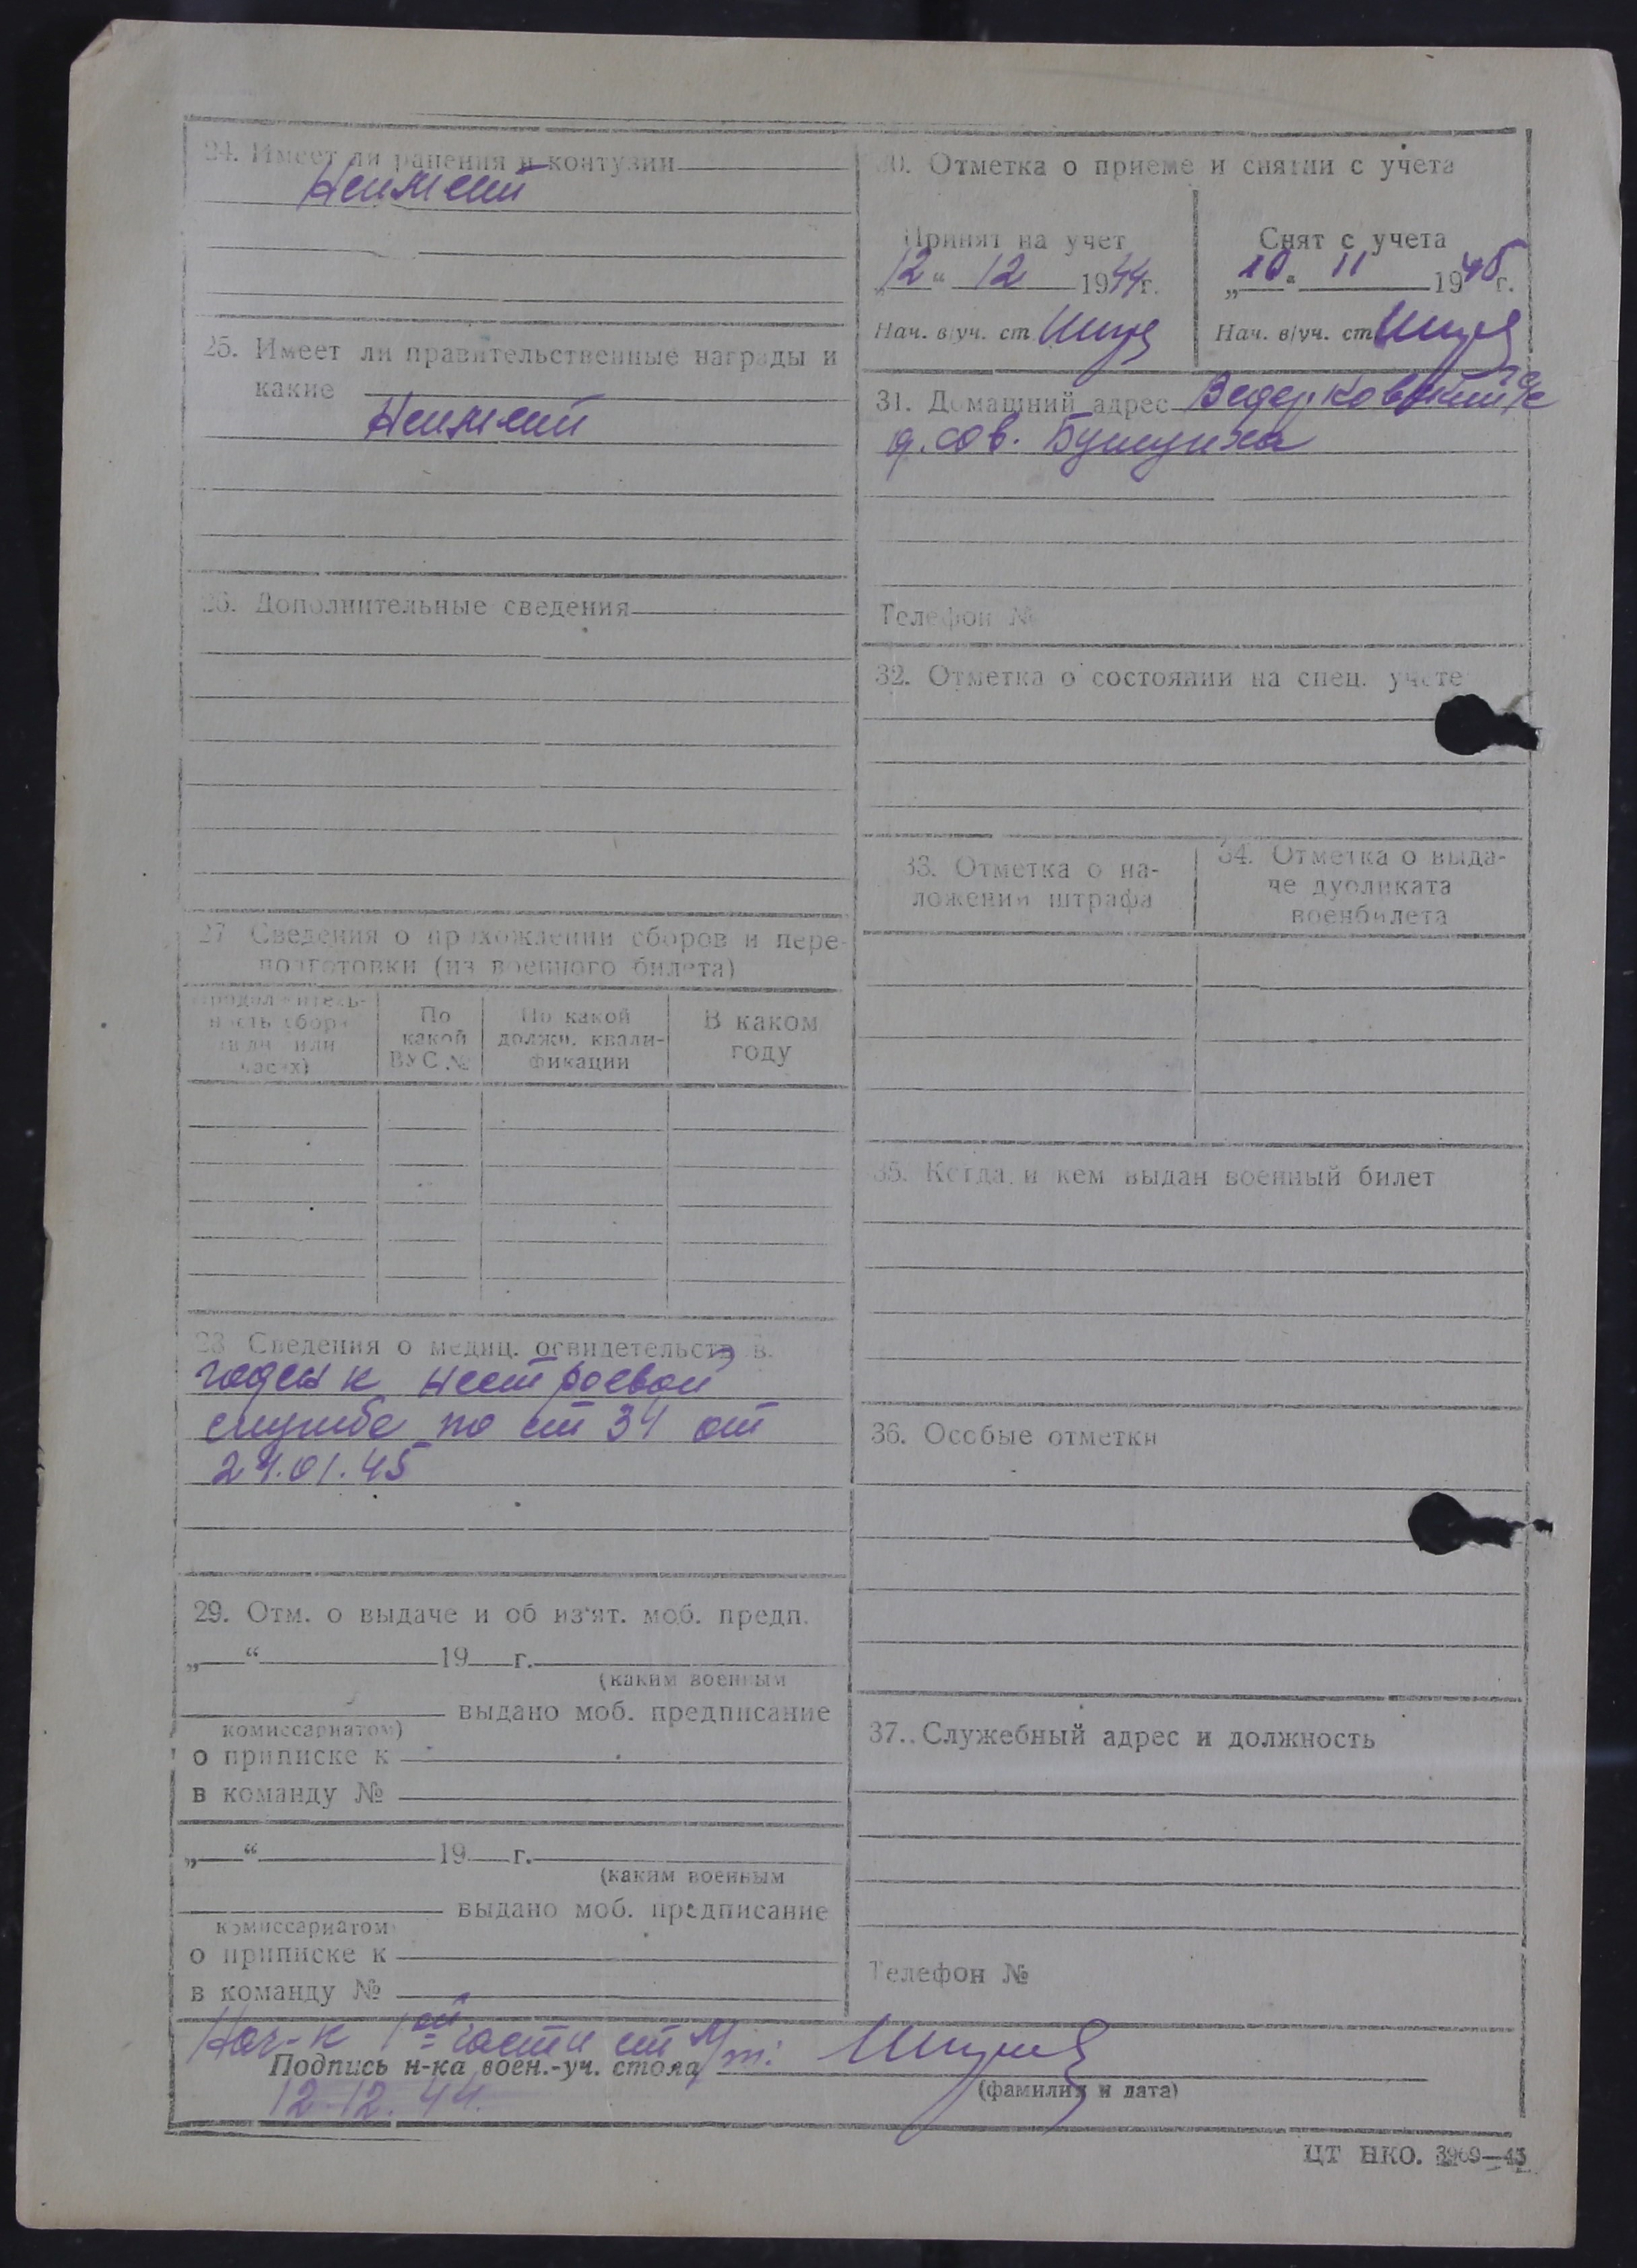 24. Имеет ли ранения и контузии
Неимеет
25. Имеет ли правительственные награды и
какие
Неимеет
26. Дополнительные сведения
27. Сведения о прохождении сборов и пере-
подготовки (из военного билета)
Продолжитель-
ность сбора
(в дн. или
часах)
По
какой
ВУС №
По какой
должн. квали-
фикации
В каком
году
28. Сведения о медиц. освидетельств в.
годен к нестроевой
службе по ст 34 от
24.01.45
29. Отм. о выдаче и об из'ят. моб. предп.
„ “ 19 г.
(каким военным
выдано моб. предписание
комиссариатом)
о приписке к
в команду №
„ “ 19 г.
(каким военным
выдано моб. предписание
комиссариатом)
о приписке к
в команду №
30. Отметка о приеме и снятии с учета
Принят на учет
„12“ 12 1944г.
Нач. в/уч. ст
Снят с учета
„10“ 11 1945г.
Нач. в/уч. ст
31. Домашний адрес
д. сов.
Телефон №
32. Отметка о состоянии на спец. учете
33. Отметка о на-
ложении штрафа
34. Отметка о выда-
че дубликата
военбилета
35. Когда и кем выдан военный билет
36. Особые отметки
37. Служебный адрес и должность
Телефон №
Нач-к 1ой части ст
Подпись н-ка воен.-уч. стола
(фамилия и дата)
12.12.44.
ЦТ НКО. 3969—45